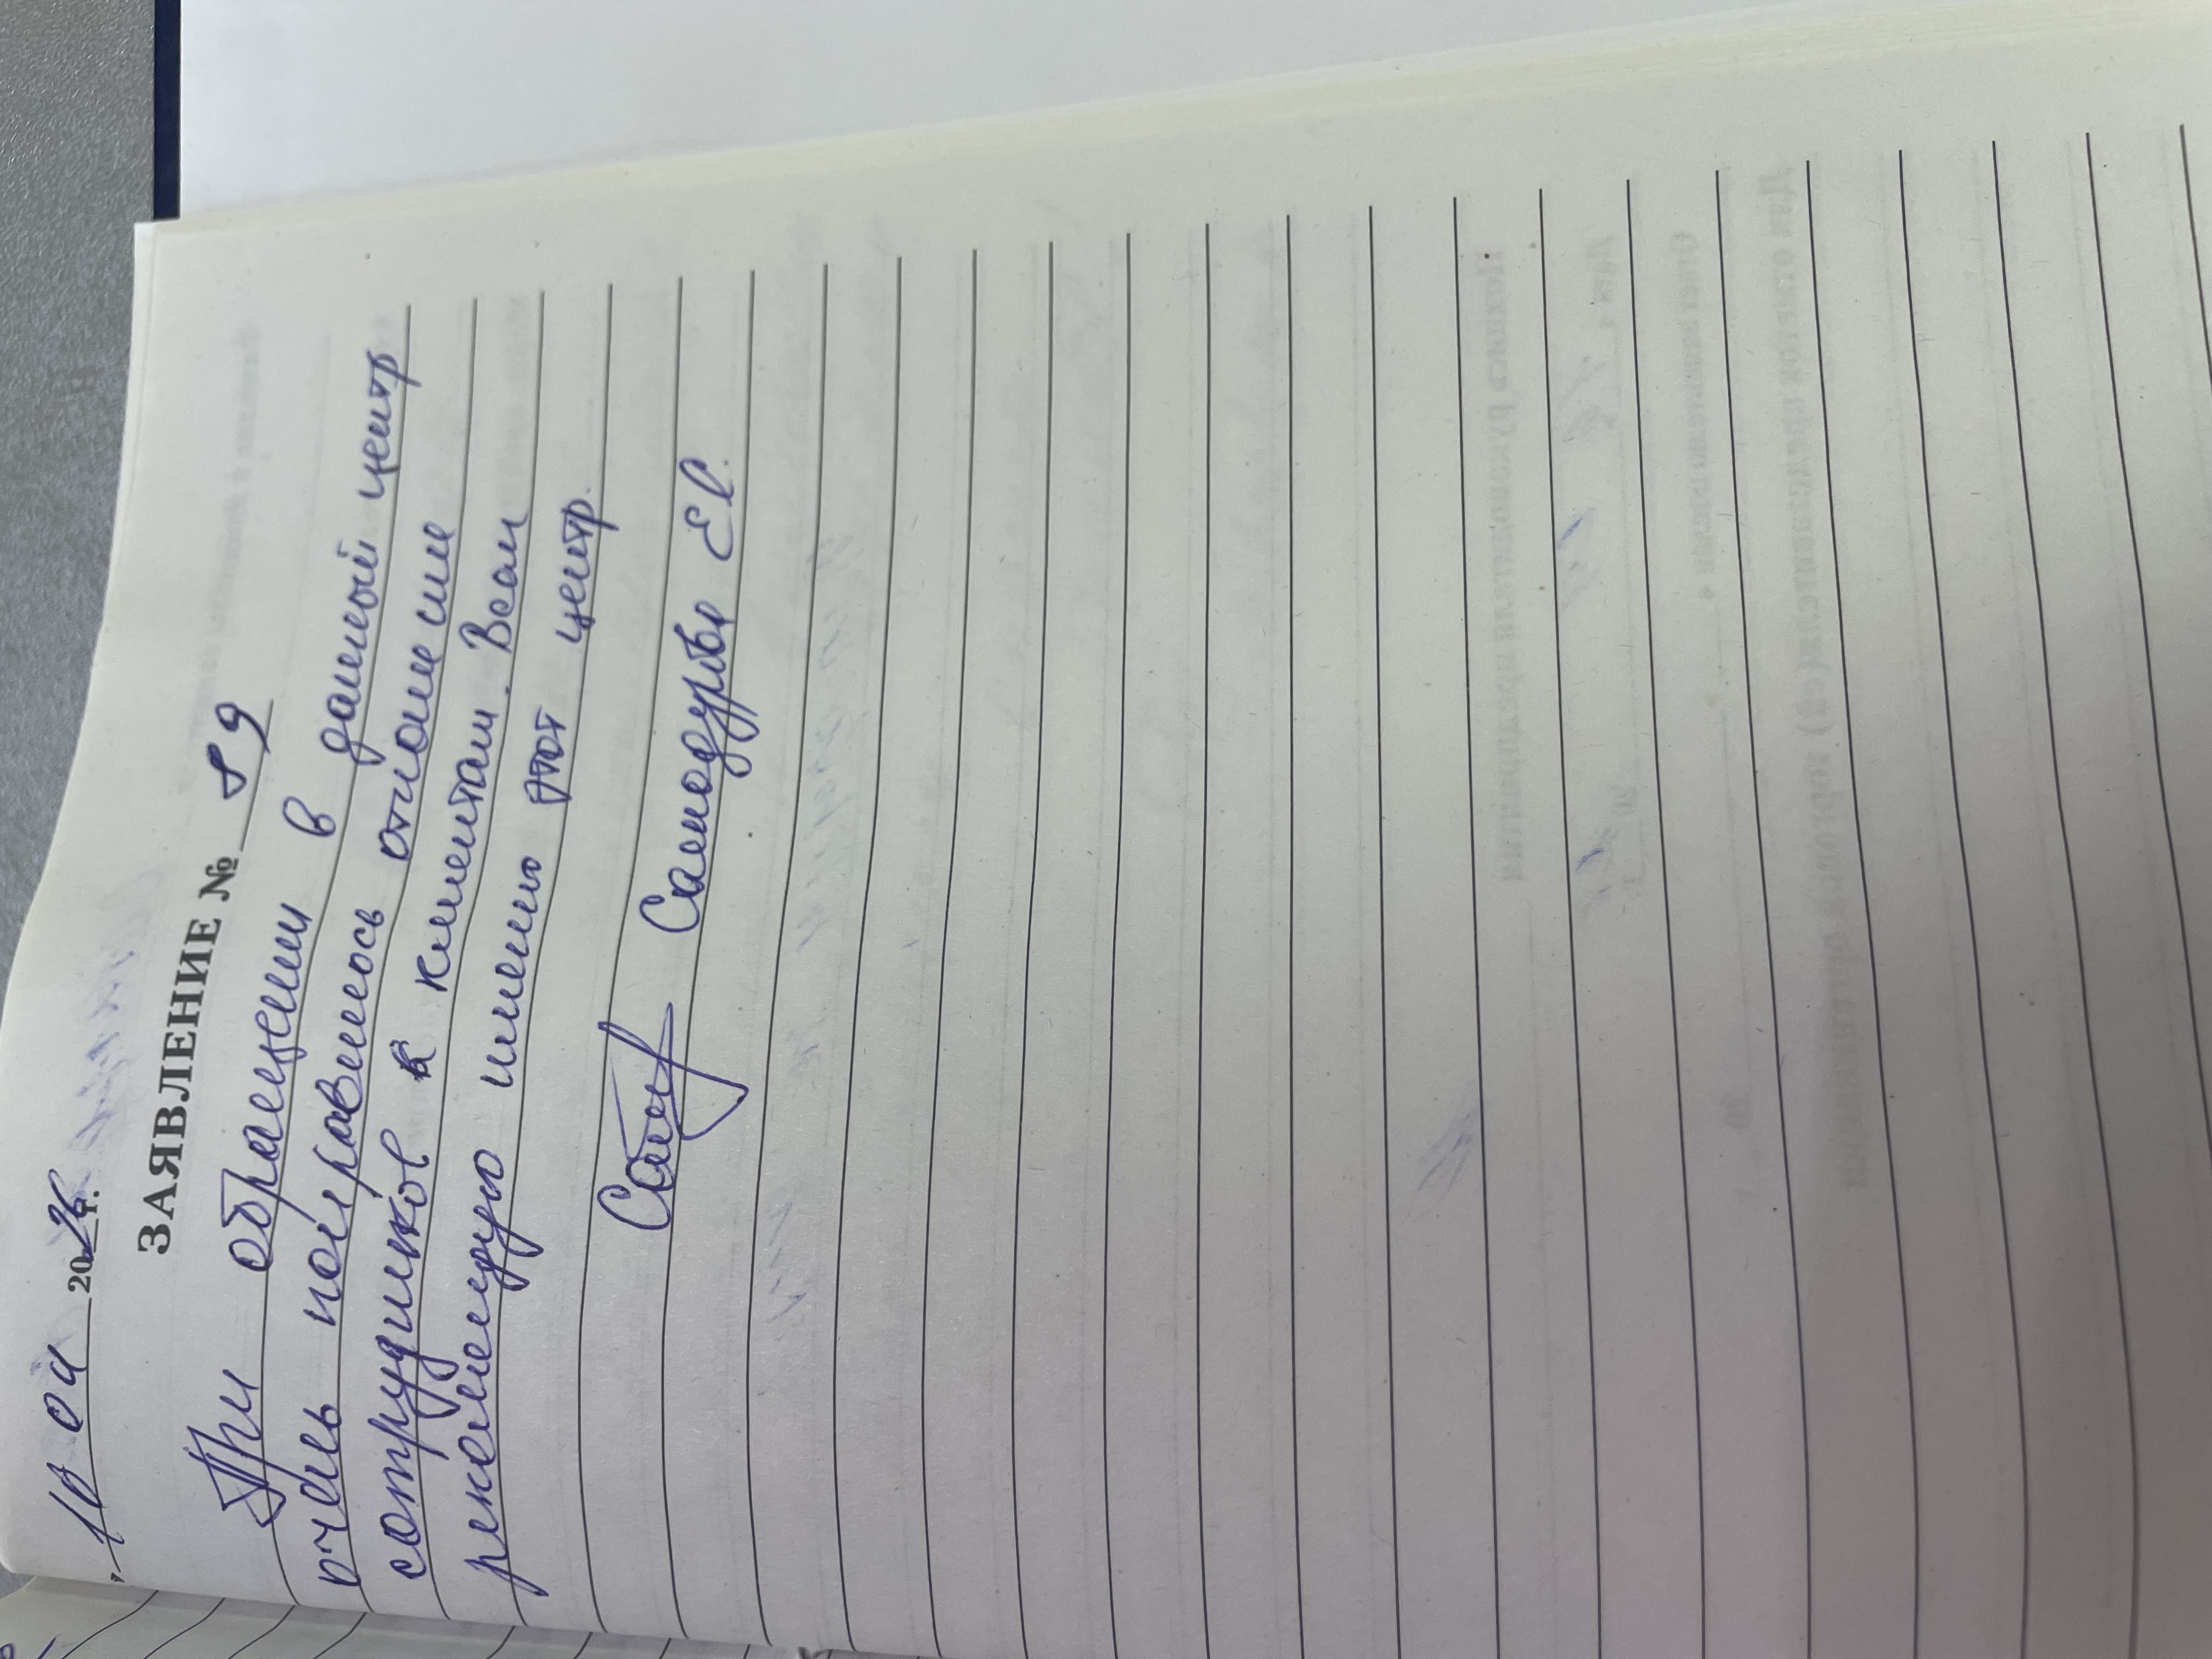 10 04 2026 г.
ЗАЯВЛЕНИЕ № 89
При обращении в данный центр
очень понравилось отношение
сотрудников к клиентам. Всем
рекомендую именно этот центр.
Самодурова Е